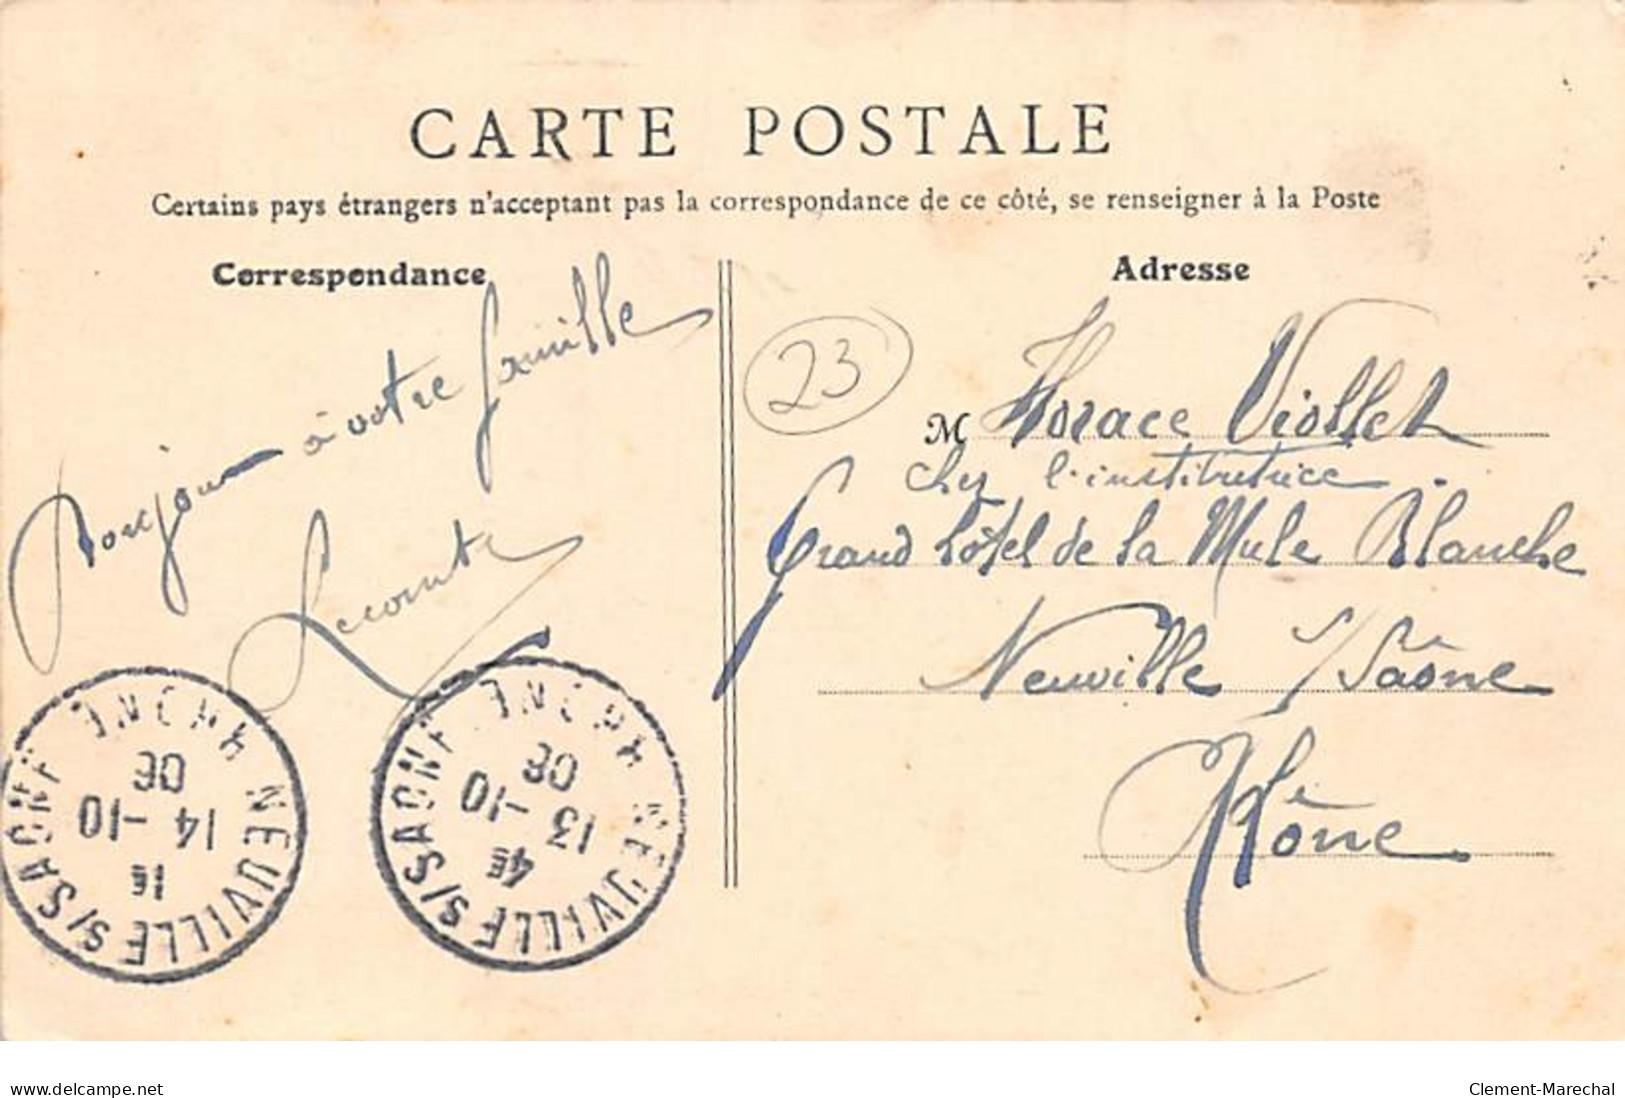 CARTE POSTALE
Certains pays étrangers n'acceptant pas la correspondance de ce côté, se renseigner à la Poste
Correspondance
Bonjour à votre famille
Lecomte
Adresse
23
M Horace Viollet
chez l'institutrice
Grand hôtel de la Mule Blanche
Neuville s/Saône
Rhône
NEUVILLE S/SAONE RHONE
1E
14 -10
06
NEUVILLE S/SAONE RHONE
4E
13 -10
06
www.delcampe.net
Clement-Marechal